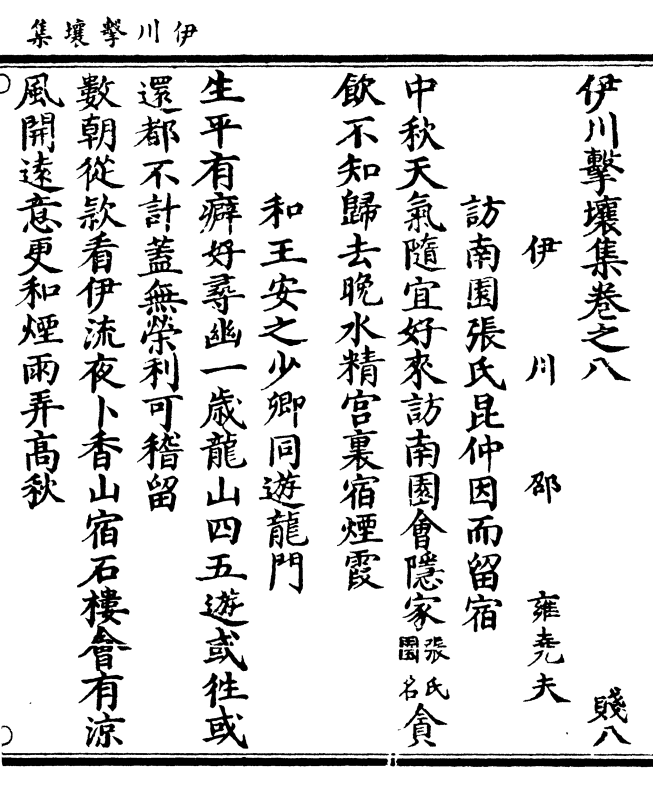 伊川擊壤集
伊川擊壤集卷之八
賤八
伊川邵雍堯夫
訪南園張氏昆仲因而留宿
中秋天氣隨宜好來訪南園會隱家張氏園名貪
飲不知歸去晚水精宮裏宿煙霞
和王安之少卿同遊龍門
生平有癖好尋幽一歲龍山四五遊或徃或
還都不計蓋無榮利可稽留
數朝從款看伊流夜卜香山宿石樓會有涼
風開遠意更和煙雨弄高秋